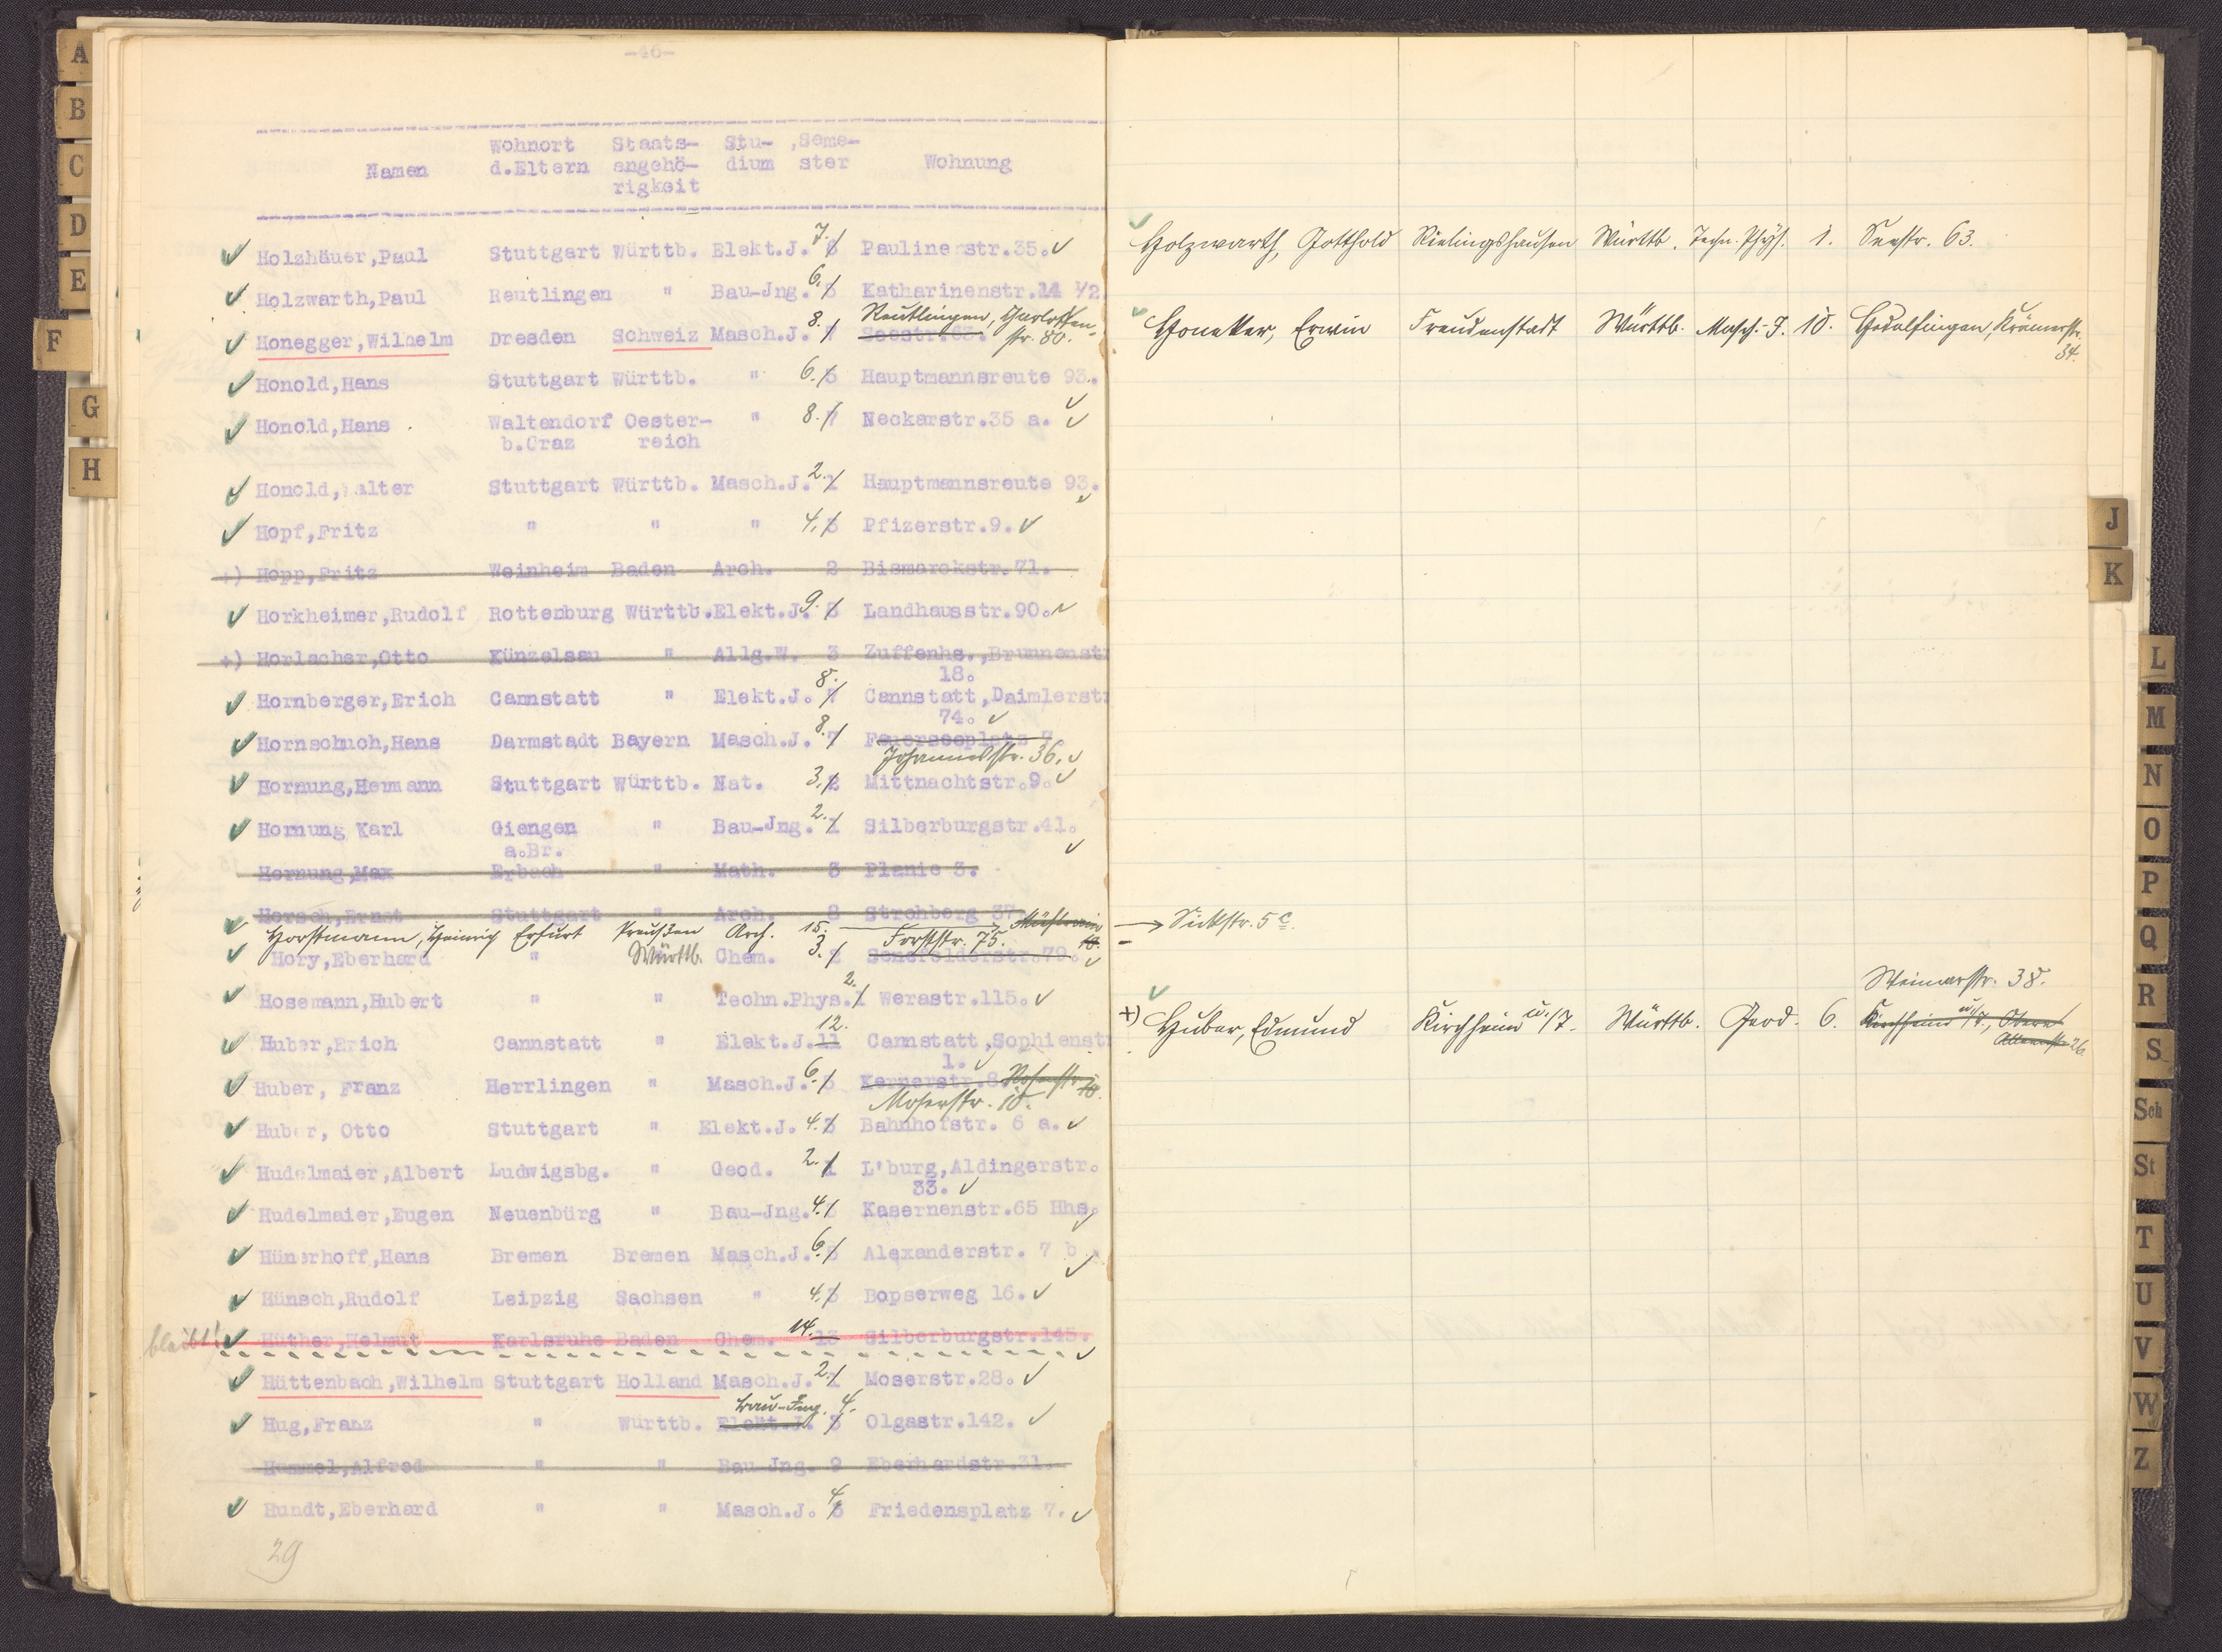 -46-
Namen Wohnort d.Eltern Staats-angehö-rigkeit Stu-dium Seme-ster Wohnung
Holzhäuer,Paul Stuttgart Württb. Elekt.J. 7. 6 Paulinenstr.35.
Holzwarth,Paul Reutlingen " Bau-Jng. 6. 5 Katharinenstr.14 1/2
Reutlingen, Charlotten-
Honegger,Wilhelm Dresden Schweiz Masch.J. 8. 7 Seestr.63. str. 80.
Honold,Hans Stuttgart Württb. " 6. 5 Hauptmannsreute 93.
Honold,Hans Waltendorf Oester- " 8. 7 Neckarstr.35 a.
b.Graz reich
Honold,Walter Stuttgart Württb. Masch.J. 2. 1 Hauptmannsreute 93.
Hopf,Fritz " " " 4. 3 Pfizerstr.9.
+) Hopp,Fritz Weinheim Baden Arch. 2 Bismarckstr.71.
Horkheimer,Rudolf Rottenburg Württb. Elekt.J. 9. 8 Landhausstr.90.
+) Horlacher,Otto Künzelsau " Allg.W. 3 Zuffenhs.,Brunnenstr
18.
Hornberger,Erich Cannstatt " Elekt.J. 8. 7 Cannstatt,Daimlerstr
74.
Hornschuch,Hans Darmstadt Bayern Masch.J. 8. 7 Feuerseeplatz 7
Johannesstr. 36.
Hornung,Hermann Stuttgart Württb. Nat. 3. 2 Mittnachtstr.9.
Hornung Karl Giengen " Bau-Jng. 2. 1 Silberburgstr.41.
a.Br.
Hornung,Max Erbach " Math. 3 Planie 3.
Horsch,Ernst Stuttgart " Arch. 8 Strohberg 37
Horstmann, Heinrich Erfurt Preußen Arch. 15. Forststr. 75.
Hory,Eberhard " Württb. Chem. 3. 2 Senefelderstr.79.
Hosemann,Hubert " " Techn.Phys. 2. 1 Werastr.115.
Huber,Erich Cannstatt " Elekt.J. 12. 11 Cannstatt,Sophienstr
1.
Huber, Franz Herrlingen " Masch.J. 6. 5 Kernerstr.8.
Moserstr. 10.
Huber, Otto Stuttgart " Elekt.J. 4. 3 Bahnhofstr. 6 a.
Hudelmaier,Albert Ludwigsbg. " Geod. 2. 1 L'burg,Aldingerstr.
33.
Hudelmaier,Eugen Neuenbürg " Bau-Jng. 4. Kasernenstr.65 Hhs.
Hünerhoff,Hans Bremen Bremen Masch.J. 6. 5 Alexanderstr. 7 b.
Hünsch,Rudolf Leipzig Sachsen " 4. 3 Bopserweg 16.
bleibt! Hüther,Helmut Karlsruhe Baden Chem. 14. 13 Silberburgstr.145.
Hüttenbach,Wilhelm Stuttgart Holland Masch.J. 2. 1 Moserstr.28.
Bau-Ing. 4.
Hug,Franz " Württb. Elekt.J. 3 Olgastr.142.
Hummel,Alfred " " Bau-Jng. 9 Eberhardstr.31.
Hundt,Eberhard " " Masch.J. 4. 3 Friedensplatz 7.
29
Holzwarth, Gotthold Rielingshausen Württb. Techn. Phys. 1. Seestr. 63.
Honekker, Erwin Freudenstadt Württb. Masch.-J. 10. Hedelfingen, Krämerstr.
34.
Sickstr. 5 c.
Weimarstr. 38.
+) Huber, Edmund Kirchheim u./T. Württb. Geod. 6. Kirchheim u/T., Obere
26
A
B
C
D
E
F
G
H
J
K
L
M
N
O
P
Q
R
S
Sch
St
T
U
V
W
Z